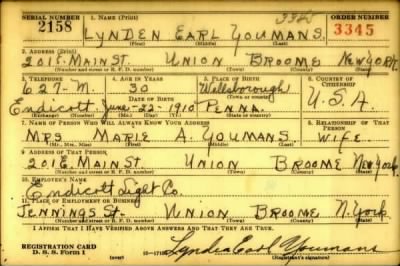 SERIAL NUMBER 1. NAME (Print) ORDER NUMBER
3345
2158 LYNDEN EARL YOUMANS 3345
(First) (Middle) (Last)
2. ADDRESS (Print)
201 E. MAIN ST. UNION BROOME NEW YORK
(Number and street or R. F. D. number) (Town) (County) (State)
3. TELEPHONE 4. AGE IN YEARS 5. PLACE OF BIRTH 6. COUNTRY OF CITIZENSHIP
627-M. 30 Wellsborough
DATE OF BIRTH (Town or county)
Endicott June-22-1910 PENNA. U.S.A.
(Exchange) (Number) (Mo.) (Day) (Yr.) (State or country)
7. NAME OF PERSON WHO WILL ALWAYS KNOW YOUR ADDRESS 8. RELATIONSHIP OF THAT PERSON
MRS MARIE A. YOUMANS WIFE
(Mr., Mrs., Miss) (First) (Middle) (Last)
9. ADDRESS OF THAT PERSON
201 E. MAIN ST. UNION BROOME New York
(Number and street or R. F. D. number) (Town) (County) (State)
10. EMPLOYER'S NAME
Endicott Light Co.
11. PLACE OF EMPLOYMENT OR BUSINESS
JENNINGS St. UNION BROOME N. York
(Number and street or R. F. D. number) (Town) (County) (State)
I AFFIRM THAT I HAVE VERIFIED ABOVE ANSWERS AND THAT THEY ARE TRUE.
REGISTRATION CARD
D. S. S. Form 1 Lynden Earl Youmans
(Registrant's signature)